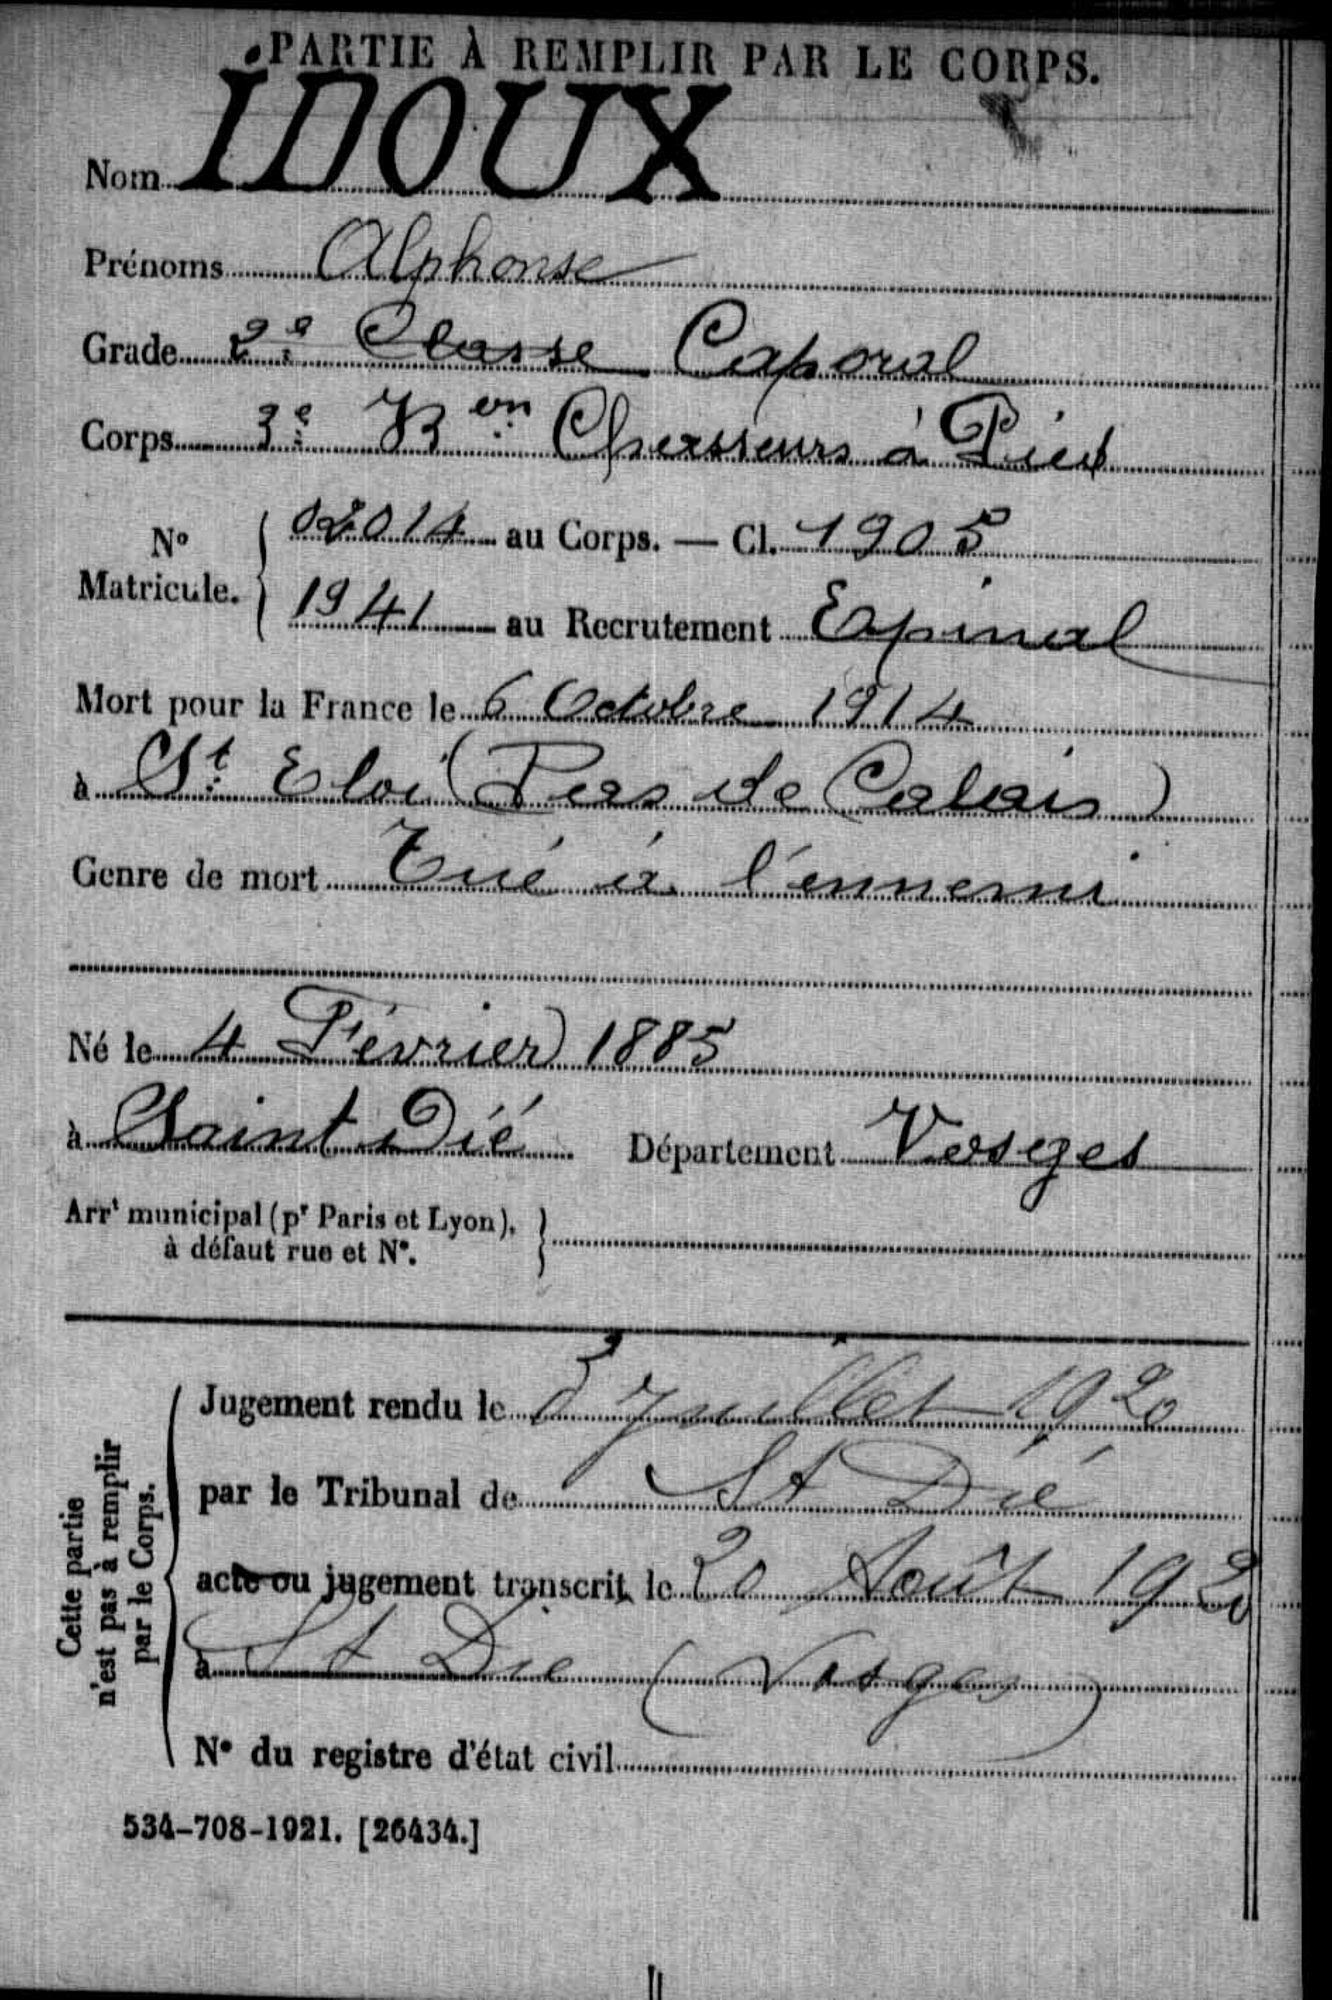 PARTIE À REMPLIR PAR LE CORPS.
Nom IDOUX
Prénoms Alphonse
Grade 2e Classe Caporal
Corps 3e Bon Chasseurs à Pied
N° Matricule. 02014 au Corps. — Cl. 1905
1941 au Recrutement Epinal
Mort pour la France le 6 Octobre 1914
à St Eloi (Pas de Calais)
Genre de mort Tué à l'ennemi
Né le 4 Février 1885
à Saint Dié Département Vosges
Arrt municipal (pr Paris et Lyon),
à défaut rue et N°.
Cette partie
n'est pas à remplir
par le Corps.
Jugement rendu le Juillet 1920
par le Tribunal de St Dié
acte ou jugement transcrit le 20 Août 1920
à St Dié (Vosges)
N° du registre d'état civil
534-708-1921. [26434.]